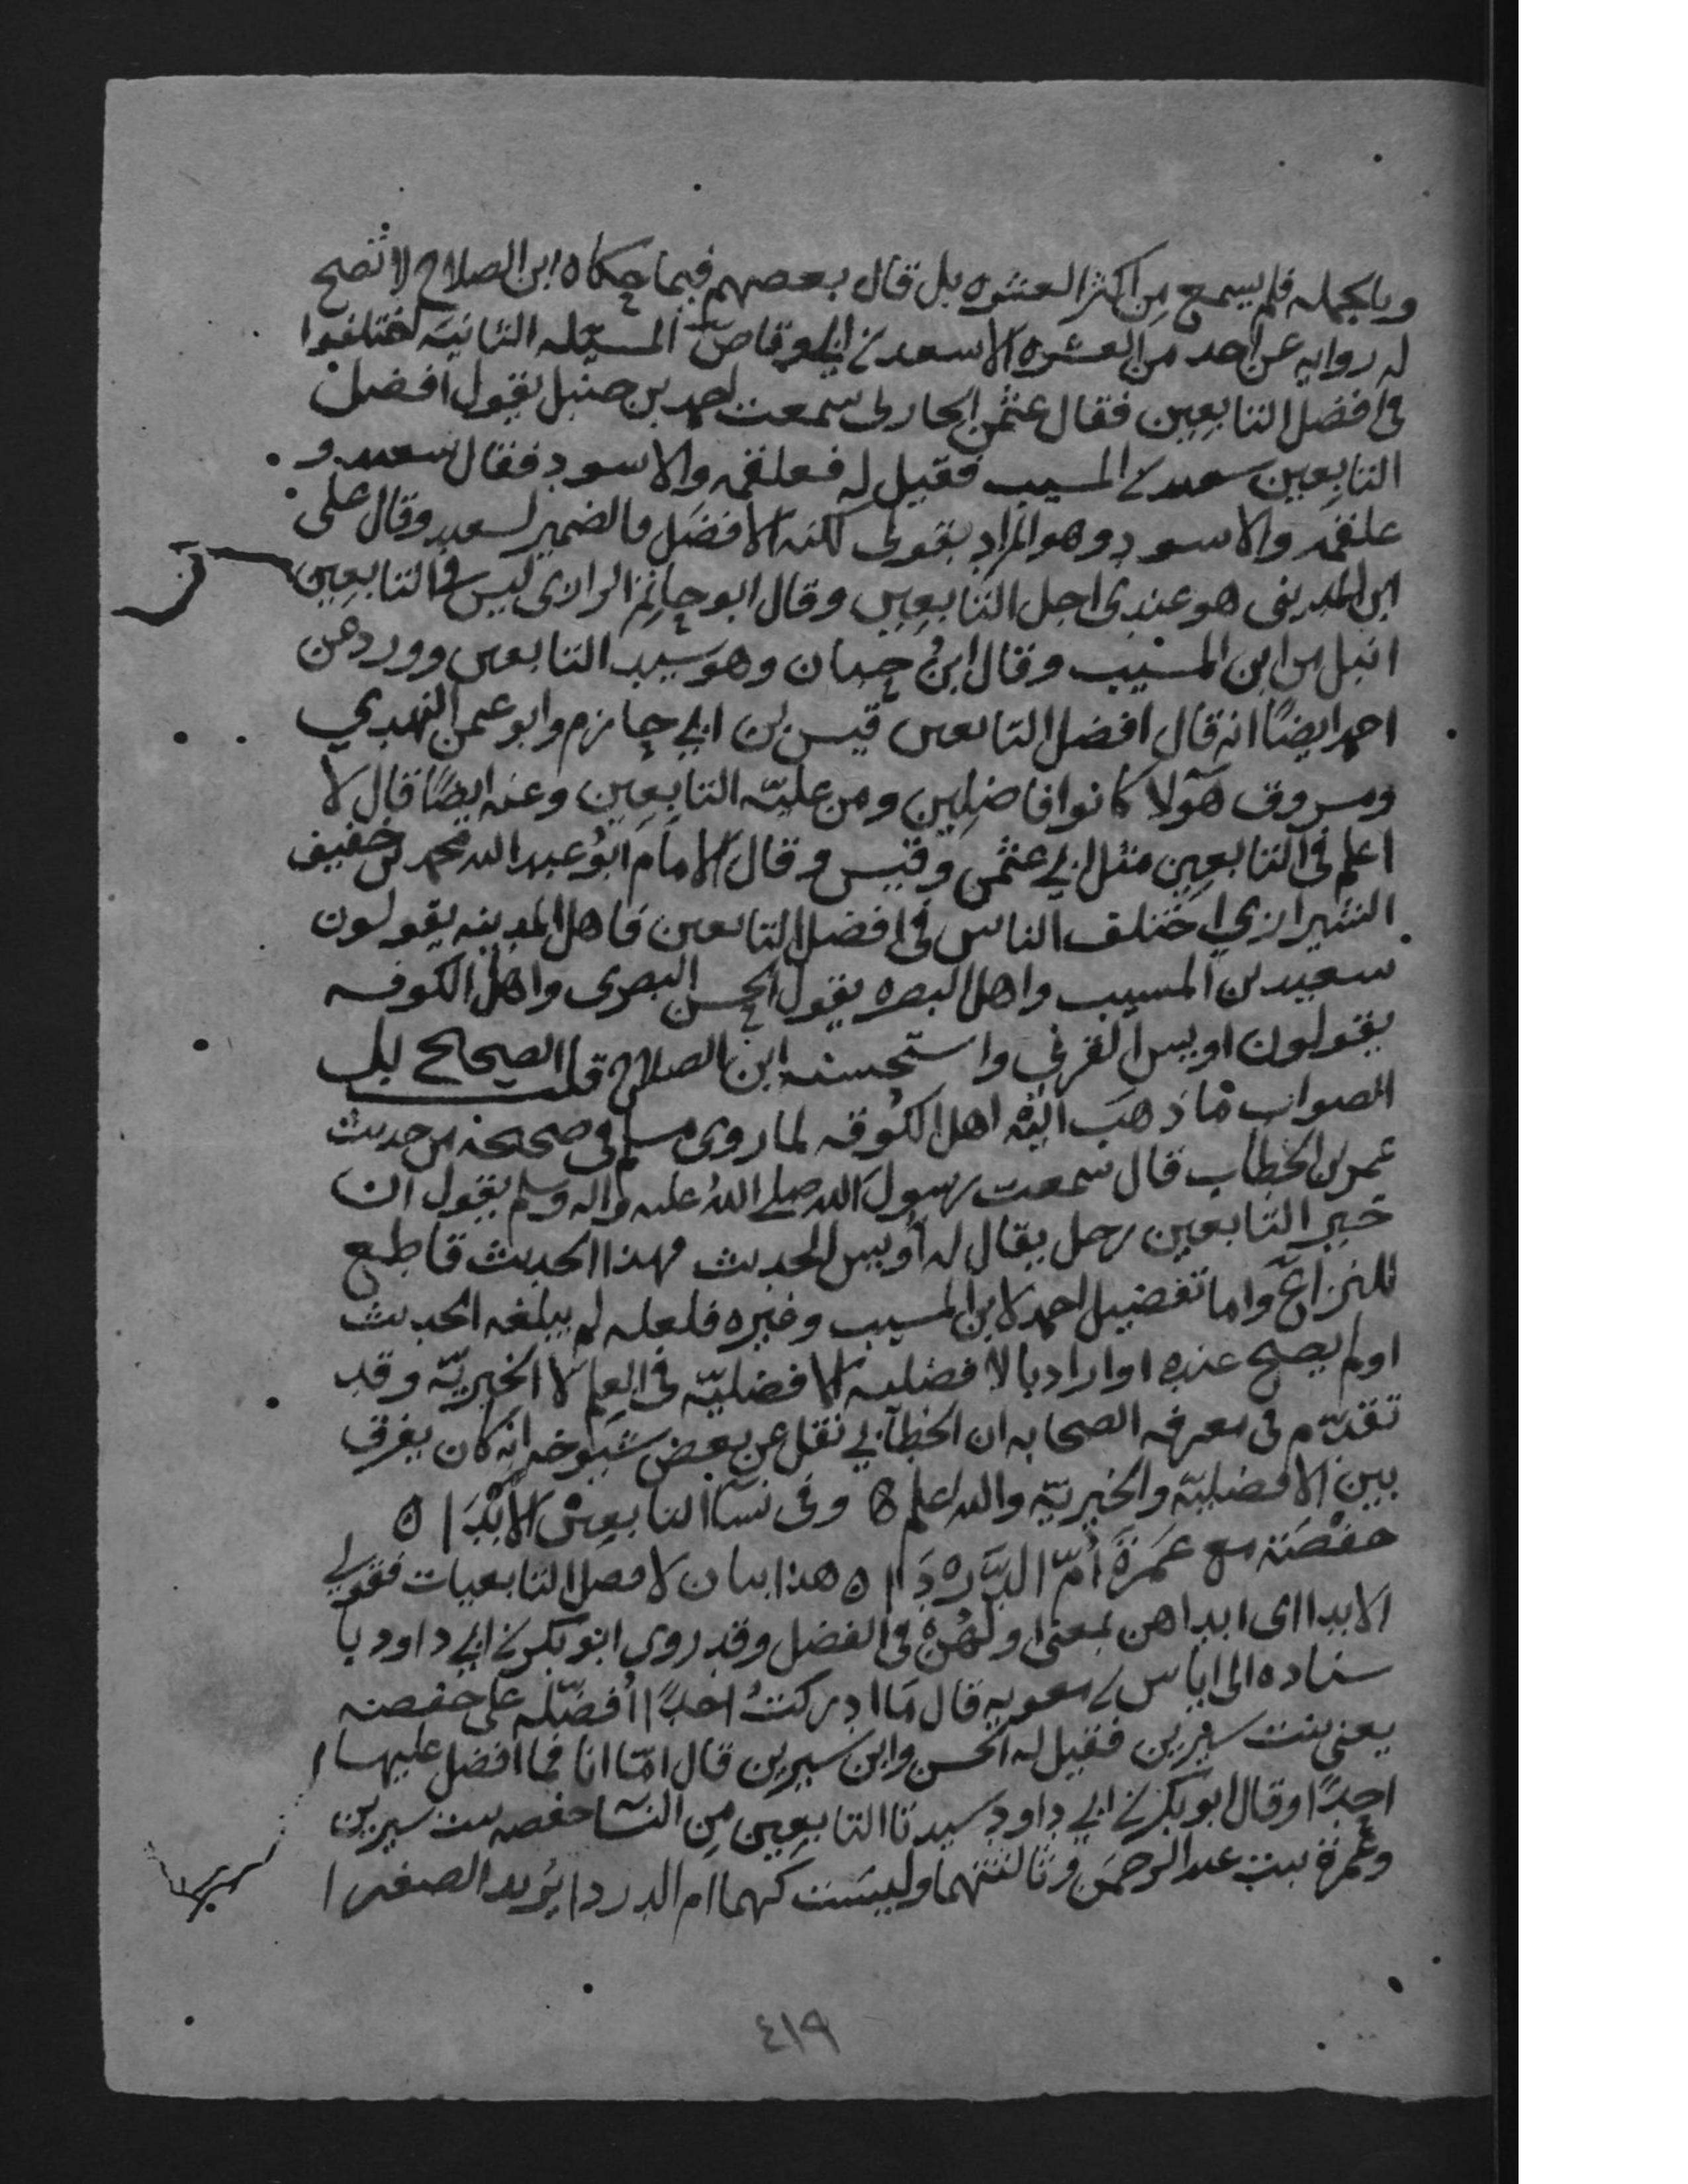 وبالجمله فلم يسمع من اكثر العشره بل قال بعضهم فيما حكاه ابن الصلاح لا تصح
له روايه عن احد من العشره الا سعد بن ابي وقاص المسئله الثانيه اختلفوا
في افضل التابعين فقال عثمن الحارثي سمعت احمد بن حنبل يقول افضل
التابعين سعيد بن المسيب فقيل له فعلقمه والاسود فقال سعيد و
علقمه والاسود وهو المراد بقولي لكنه الافضل فالضمير لسعيد وقال علي
ابن المديني هو عندي اجل التابعين وقال ابو حاتم الرازي ليس في التابعين
انبل من ابن المسيب وقال ابن حبان وهو سيد التابعين وورد عن
احمد ايضًا انه قال افضل التابعين قيس بن ابي حازم وابو عثمن النهدي
ومسروق هولا كانوا فاضلين ومن عليّة التابعين وعنه ايضًا قال لا
اعلم في التابعين مثل ابي عثمن وقيس وقال الامام ابو عبد الله محمد بن خفيف
الشيرازي اختلف الناس في افضل التابعين فاهل المدينه يقولون
سعيد بن المسيب واهل البصره يقول الحسن البصري واهل الكوفه
يقولون اويس القرني واستحسنه ابن الصلاح قلت الصحيح بل
الصواب ما ذهب اليه اهل الكوفه لما روى مسلم في صحيحه من حديث
عمر بن الخطاب قال سمعت رسول الله صلى الله عليه واله وسلم يقول ان
خير التابعين رجل يقال له اويس الحديث فهذا الحديث قاطع
للنزاع واما تفضيل احمد لابن المسيب وغيره فلعله لم يبلغه الحديث
اولم يصح عنده او اراد بالافضليه الافضليّه في العلم لا الخيريّه وقد
تقدّم في معرفه الصحابه ان الخطابي نقل عن بعض شيوخه انه كان يفرق
بين الافضليّه والخيريّه والله اعلم ه وفي نسآ التابعين الابْدَا ه
حفْصَة مع عَمرَةَ أمّ الدَّرْدَا ه هذا بيان لافضل التابعيات فقولي
الابدا اي ابداهن بمعنى اولهُنّ في الفضل وقد روى ابو بكر بن ابي داود با
سناده الى اياس بن معويه قال مَا ادركتُ احدًا اُفضّله على حفصه
يعني بنت سيرين فقيل له الحسن وابن سيرين قال امّا انا فما افضل عليها
احدًا وقال ابو بكر بن ابي داود سيدتا التابعين من النسآ حفصه بنت سيرين
وعمرة بنت عبد الرحمن وثالثتهما وليست كهما ام الدردا يريد الصغرى
٤١٩